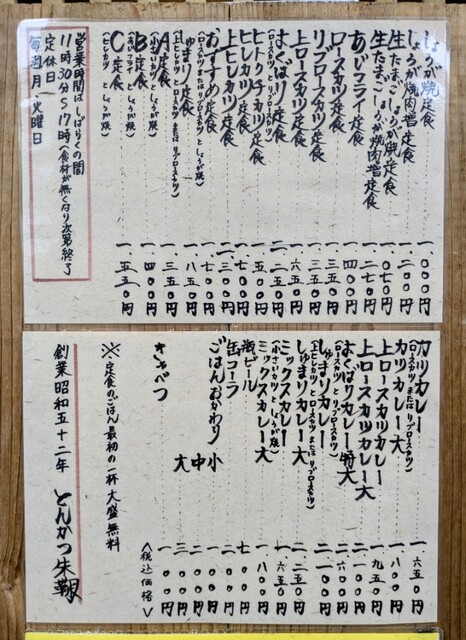 しょうが焼定食 一、〇〇〇円
しょうが焼肉増定食 一、二〇〇円
生たまごしょうが焼定食 一、〇七〇円
生たまごしょうが焼肉増定食 一、二七〇円
あじフライ定食 一、四〇〇円
ロースカツ定食 一、三五〇円
リブロースカツ定食 一、三五〇円
上ロースカツ定食 一、六五〇円
定食 二、二五〇円
ヒトクチカツ定食 一、五〇〇円
ヒレカツ定食 一、七〇〇円
上ヒレカツ定食 二、三〇〇円
おすすめ定食 一、七〇〇円
(ロースカツ または リブロースカツ と しょうが焼)
しゅまり定食 一、八五〇円
(上ヒレカツ と ロースカツ または リブロースカツ)
A定食 一、三五〇円
(小さいカツ と しょうが焼)
B定食 一、四〇〇円
(あじフライ と しょうが焼)
C定食 一、五五〇円
(ヒレカツ と しょうが焼)
営業時間は しばらくの間
11時30分〜17時(食材が無くなり次第終了)
定休日
毎週月・火曜日
カツカレー 一、六五〇円
(ロースカツ または リブロースカツ)
カツカレー 大 一、八〇〇円
上ロースカツカレー 一、九五〇円
上ロースカツカレー大 二、一〇〇円
カレー特大
(ロースカツ と リブロースカツ)
しゅまりカレー 二、一〇〇円
(上ヒレカツ と ロースカツ または リブロースカツ)
しゅまりカレー大 二、二五〇円
ミックスカレー 一、六五〇円
(小さいカツ と しょうが焼)
ミックスカレー大 一、八〇〇円
瓶ビール 七〇〇円
缶コーラ 二〇〇円
ごはんおかわり 小
中
大
きゃべつ 一〇〇円
<税込価格>
※定食のごはん最初の一杯 大盛無料
創業昭和五十二年 とんかつ朱鞠